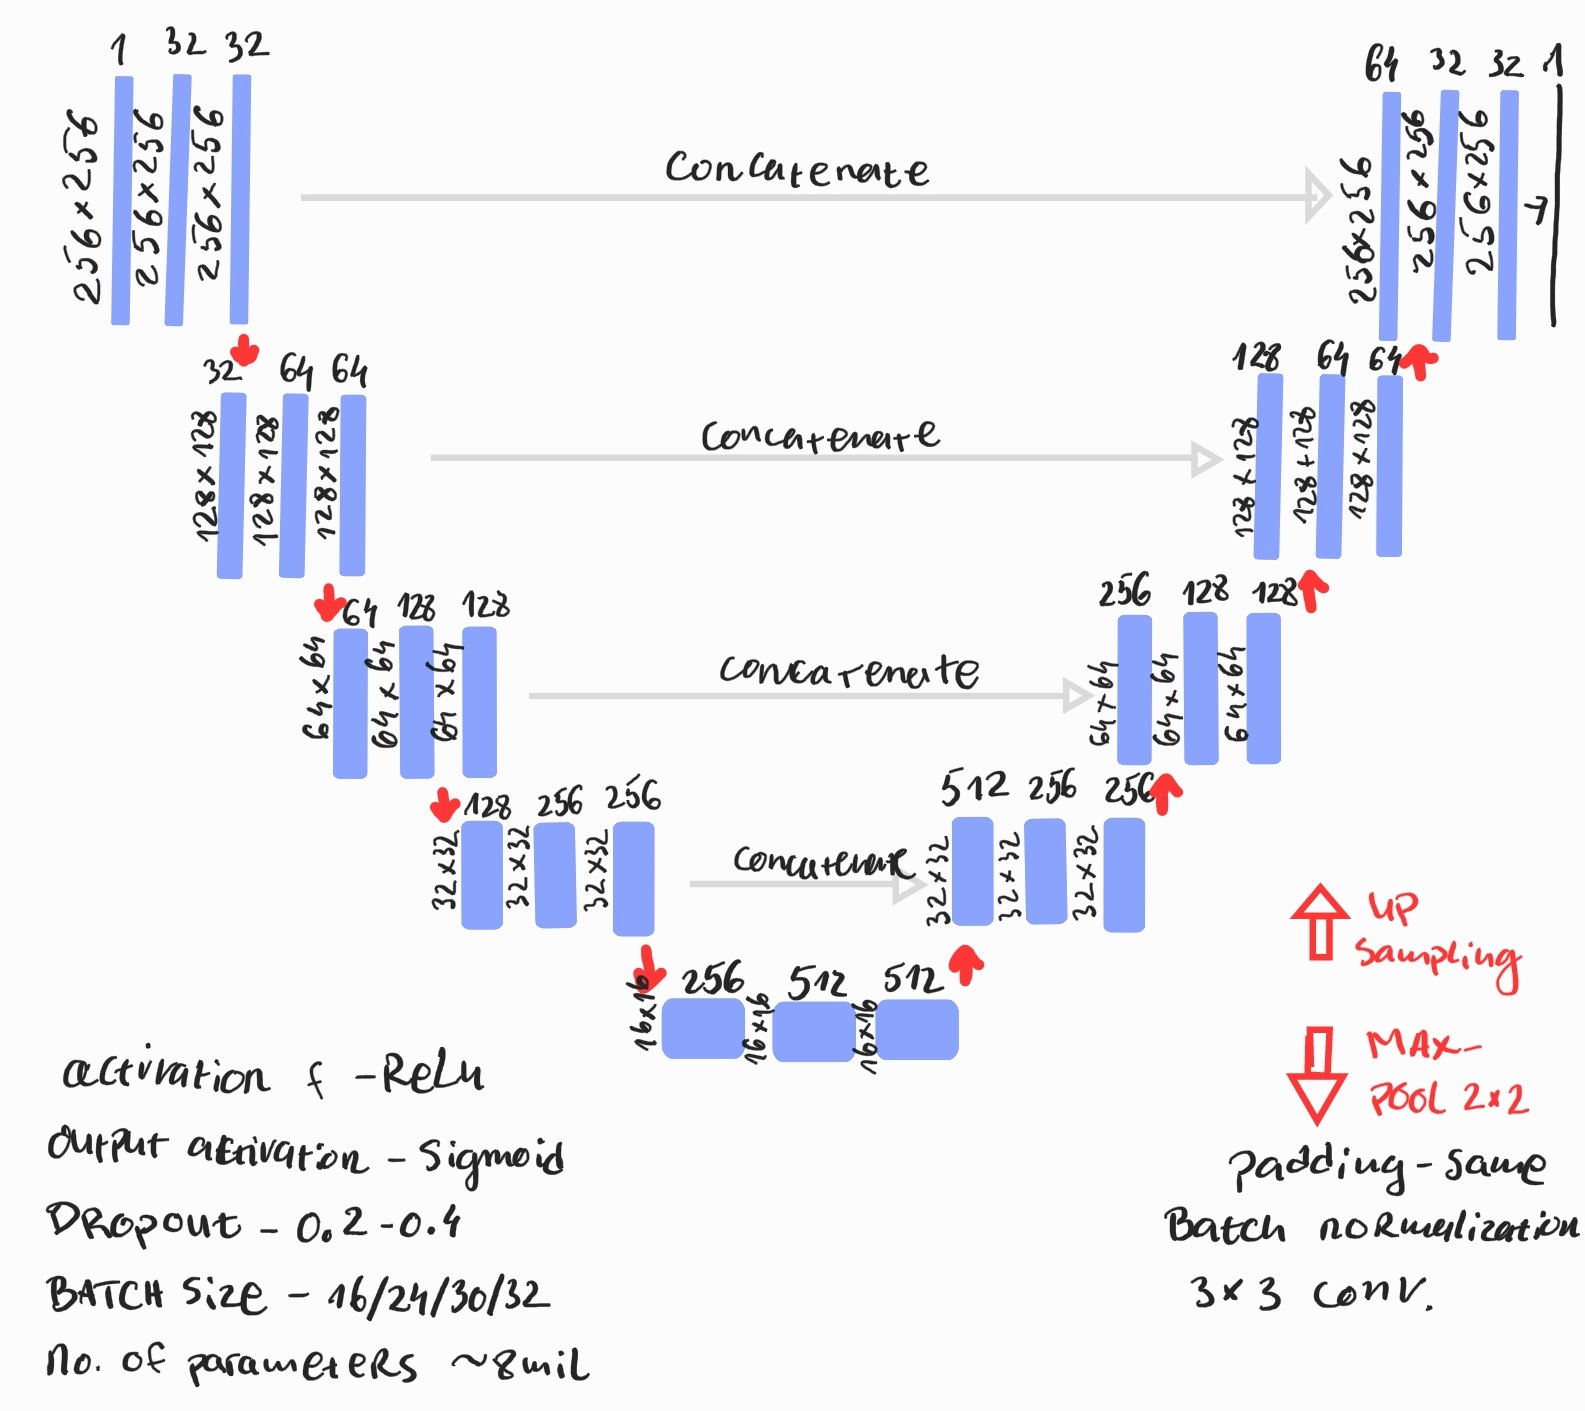 1 32 32
256×256 256×256 256×256
Concatenate
64 32 32 1
256×256 256×256 256×256
32 64 64
128×128 128×128 128×128
Concatenate
128 64 64
128×128 128+128 128×128
64 128 128
64×64 64×64 64×64
Concatenate
256 128 128
64+64 64×64 64×64
128 256 256
32×32 32×32 32×32
Concatenate
512 256 256
32×32 32×32 32×32
256 512 512
16×16 16×16 16×16
UP
sampling
MAX-
POOL 2×2
activation f - ReLu
Output activation - Sigmoid
DROPOUT - 0.2-0.4
BATCH Size - 16/24/30/32
no. of parameters ~8mil
padding - same
Batch normalization
3×3 conv.